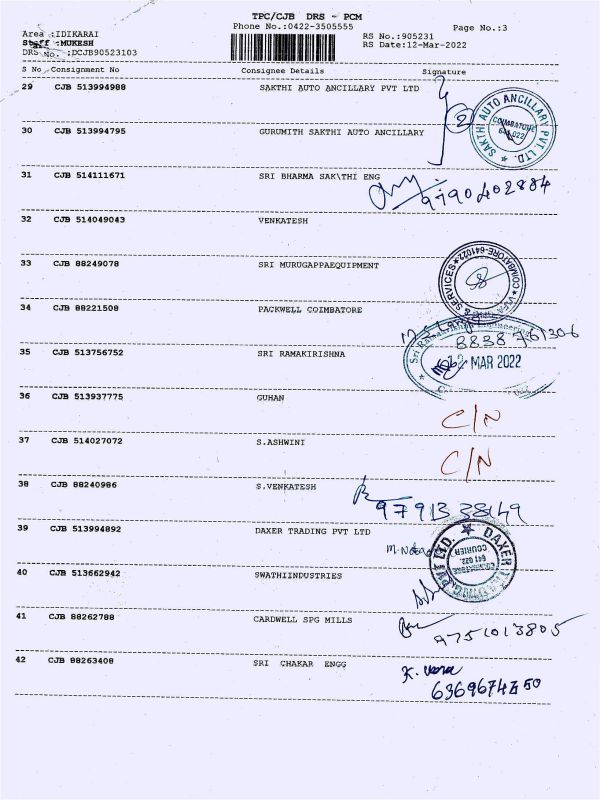 TPC/CJB DRS - PCM
Phone No.:0422-3505555
Page No.:3
Area :IDIKARAI
RS No.:905231
Staff :MUKESH
RS Date:12-Mar-2022
DRS No. :DCJB90523103
S No Consignment No Consignee Details Signature
29 CJB 513994988 SAKTHI AUTO ANCILLARY PVT LTD
2
SAKTHI AUTO ANCILLARY PVT. LTD.
COIMBATORE
30 CJB 513994795 GURUMITH SAKTHI AUTO ANCILLARY
31 CJB 514111671 SRI BHARMA SAK\THI ENG
9790402884
32 CJB 514049043 VENKATESH
33 CJB 88249078 SRI MURUGAPPAEQUIPMENT
& SERVICES COIMBATORE-641022
34 CJB 88221508 PACKWELL COIMBATORE
8838761306
Sri Ramakrishna Engineering
12 MAR 2022
35 CJB 513756752 SRI RAMAKIRISHNA
36 CJB 513937775 GUHAN
C/N
37 CJB 514027072 S.ASHWINI
C/N
38 CJB 88240986 S.VENKATESH
9791338149
39 CJB 513994892 DAXER TRADING PVT LTD
DAXER TRADING PVT LTD.
COIMBATORE
641 022
COURIER
40 CJB 513662942 SWATHIINDUSTRIES
41 CJB 88262788 CARDWELL SPG MILLS
9751013805
42 CJB 88263408 SRI CHAKAR ENGG